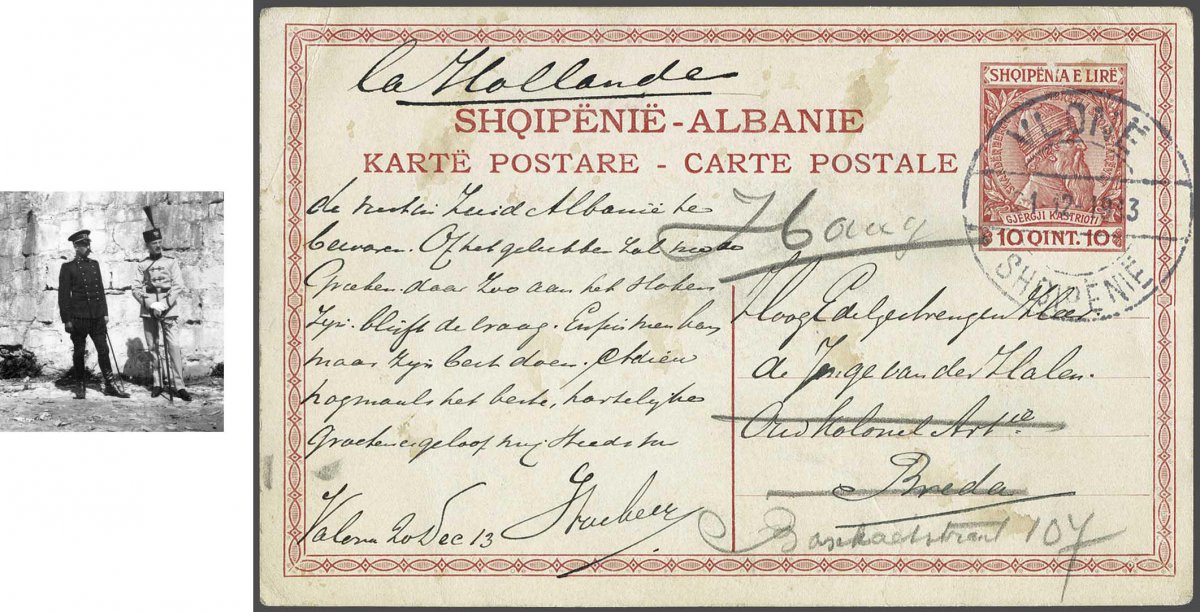 la Hollande
SHQIPËNIË-ALBANIE
KARTË POSTARE - CARTE POSTALE
SHQIPËNIA E LIRË
GJERGJI KASTRIOTI
10 QINT. 10
VLONË
SHQIPËNIË
de rust in Zuid Albanië te
bewaren. Of het gelukken zal
Grieken daar zoo aan het
zijn blijft de vraag. Enfin men kan
maar zijn best doen. Adieu
nogmaals het beste, hartelijke
Groeten en geloof mij steeds
Valona 20 Dec 13
Haag
HoogEdelgestrengen Heer
de Jonge van der Halen.
Oud Kolonel Art ie
Breda
107